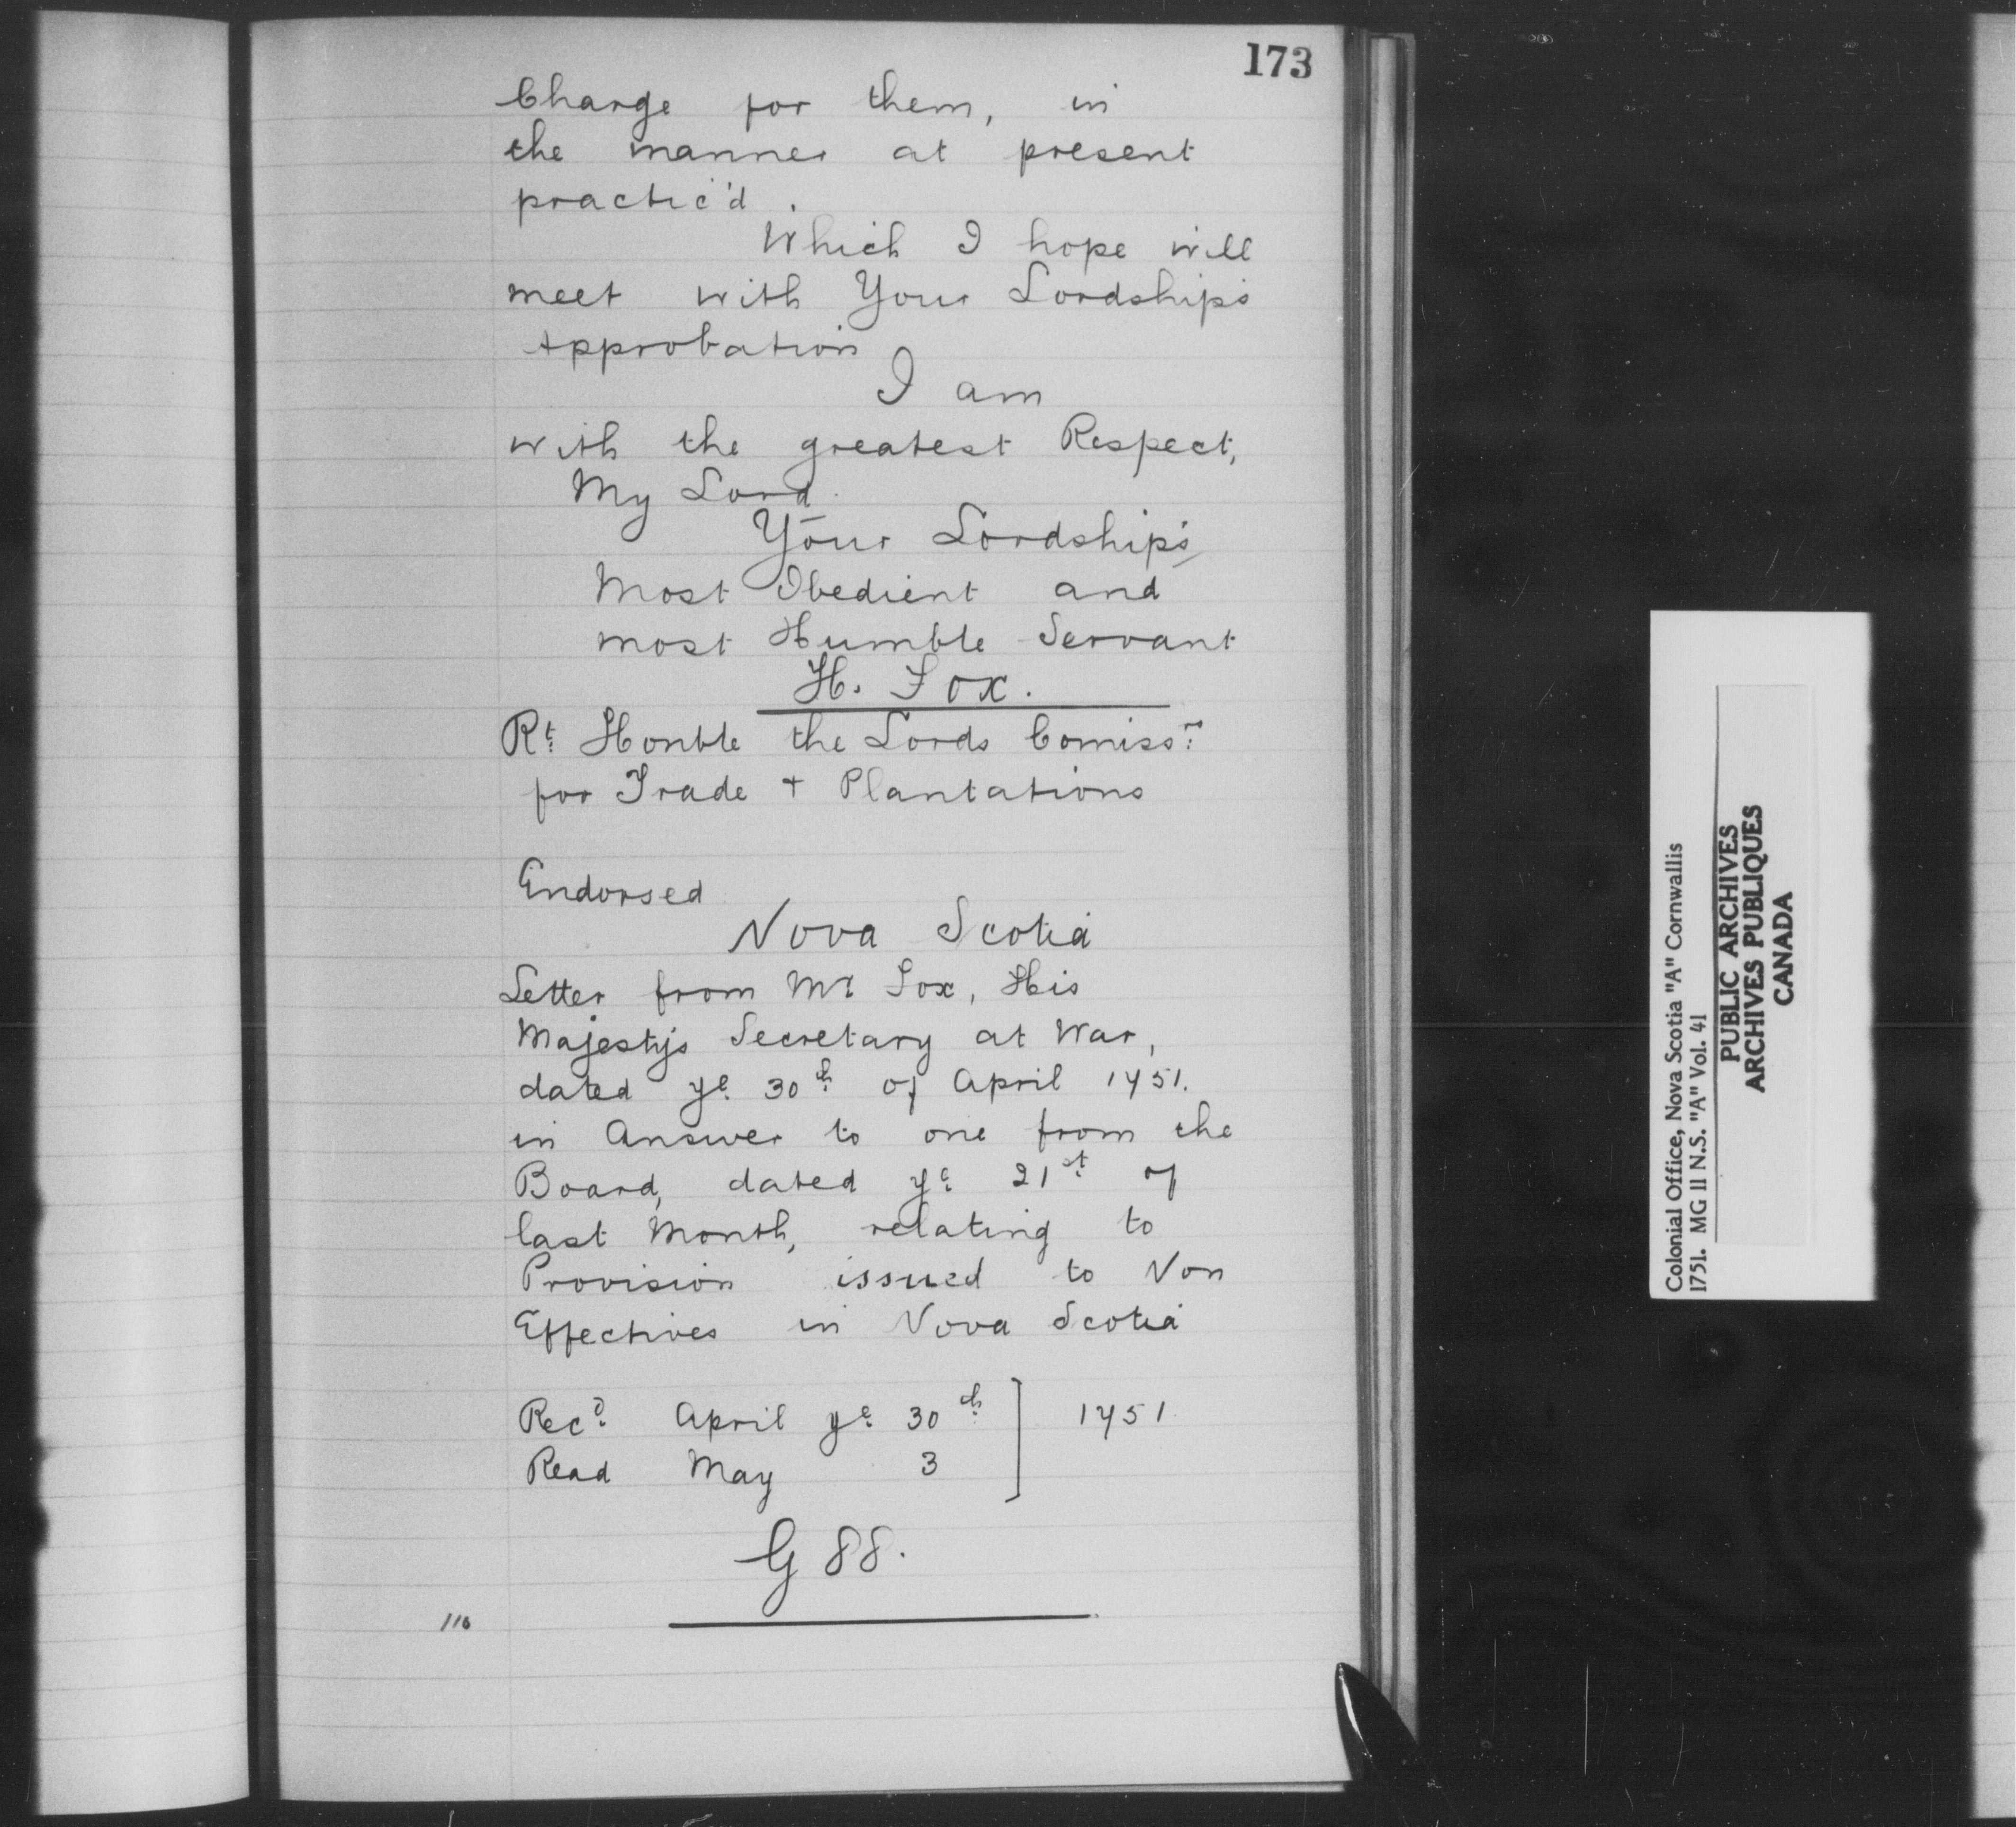 173
Charge for them, in
the manner at present
practic'd.
Which I hope will
meet with Your Lordship's
Approbation
I am
with the greatest Respect,
My Lord.
Your Lordship's
Most Obedient and
most Humble Servant
H. Fox.
Rt. Honble the Lords Comissrs
for Trade + Plantations
Endorsed
Nova Scotia
Letter from Mr Fox, His
Majesty's Secretary at War,
dated ye 30th of April 1751.
in Answer to one from the
Board, dated ye 21st of
last Month, relating to
Provision issued to Non
Effectives in Nova Scotia
Recd April ye 30th ] 1751.
Read May 3
G 88.
110
Colonial Office, Nova Scotia "A" Cornwallis
1751. MG 11 N.S. "A" Vol. 41
PUBLIC ARCHIVES
ARCHIVES PUBLIQUES
CANADA